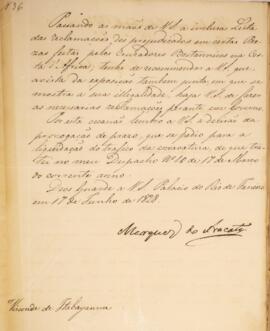 N 36
Passando as mãos de V.S. a inclusa Lista
das reclamações dos prejudicados em varias Pre-
zas feitas pelos Cruzadores Britannicos na Cos-
ta d'Africa, tenho de recommendar a V.S. que
a vista da exposição tambem junta em que se
mostra a sua illegalidade, haja V.S. de fazer
as necessarias reclamações perante esse Governo.
Por esta occasião lembro a V.S. a decisão da
prorogação do prazo, que se pedio para a
liquidação do trafico da escravatura, de que tra-
tei no meu Despacho Nº 10 de 17 de Março
do corrente anno.
Deos Guarde a V.S. Palacio do Rio de Janeiro
em 17 de Junho de 1828
Marquez do Aracaty
Visconde de Itabayanna